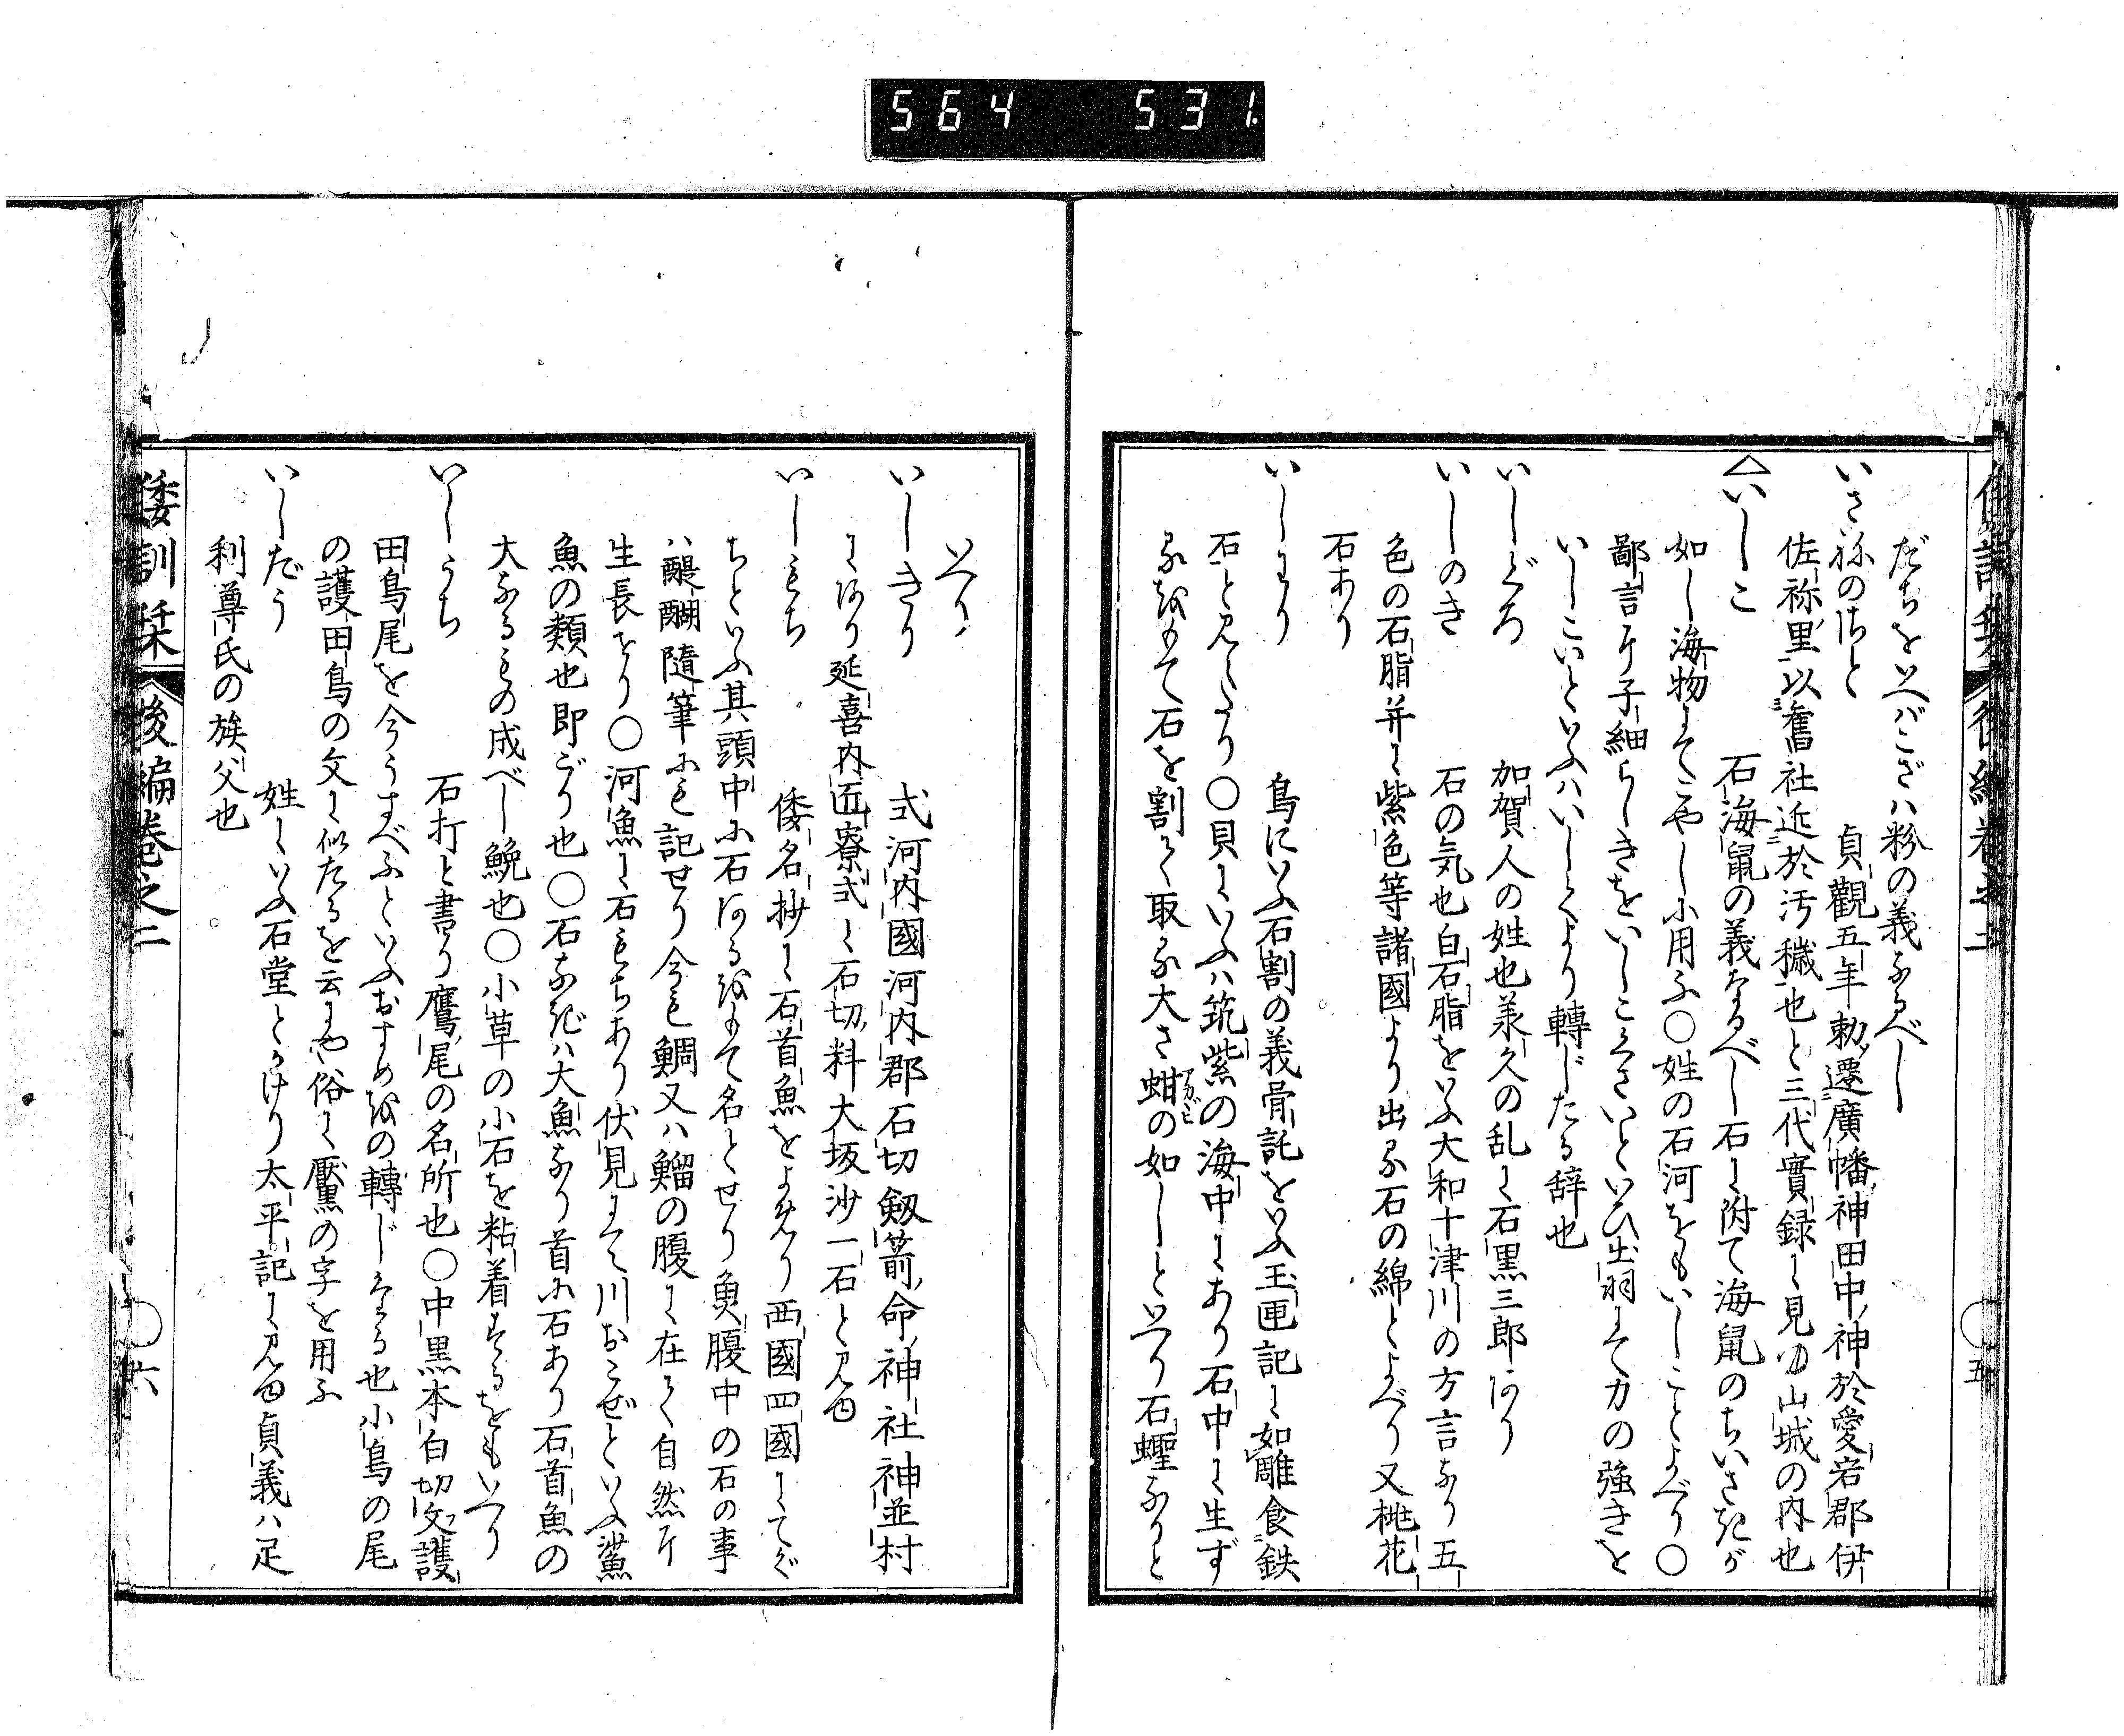 564 531.
だちをいへバこざハ粉の義なるべし
いさねのさと 貞觀五年勅遷廣幡神田中神於愛宕郡伊
佐祢里以舊社近於汚穢也と三代實録に見ゆ山城の内也
△いしこ 石海鼠の義なるべし石に附て海鼠のちいさきが
如し海物にてこやしに用ふ○姓の石河をもいしことよべり○
鄙言に子細らしきをいしこくさいといひ出羽にて力の強きを
いしこいといふハいしくより轉じたる辞也
いしぐろ 加賀人の姓也承久の乱に石黒三郎あり
いしのき 石の気也白石脂をいふ大和十津川の方言なり五
色の石脂并に紫色等諸國より出る石の綿とよべり又桃花
石あり
いしわり 鳥にいふ石割の義骨託をいふ玉匣記に如雕食鉄
石と見えたり○貝にいふハ筑紫の海中にあり石中に生ず
るをもて石を割て取る大さ蚶の如しといへり石蟶なりと
いへり
いしきり 式河内國河内郡石切劔箭命神社神並村
にあり延喜内匠寮式に石切料大坂沙一石と見ゆ
いしもち 倭名抄に石首魚をよめり西國四國にてぐ
ちといふ其頭中に石あるをもて名とせり魚腹中の石の事
ハ醍醐隨筆にも記せり今も鯛又ハ鰡の腹に在て自然に
生長をり○河魚に石もちあり伏見にて川おこぜといふ鯊
魚の類也即ごり也○石なぎハ大魚なり首に石あり石首魚の
大なるもの成べし鮸也○小草の小石を粘着するをもいへり
いしうち 石打と書り鷹尾の名所也○中黒本白切文護
田鳥尾を今うすべふといふおすめをの轉じなる也小鳥の尾
の護田鳥の文に似たるを云にや俗に黶の字を用ふ
いしだう 姓にいふ石堂とかけり太平記に見ゆ貞義ハ足
利尊氏の族父也
倭訓栞 後編巻之二 ○六
○五